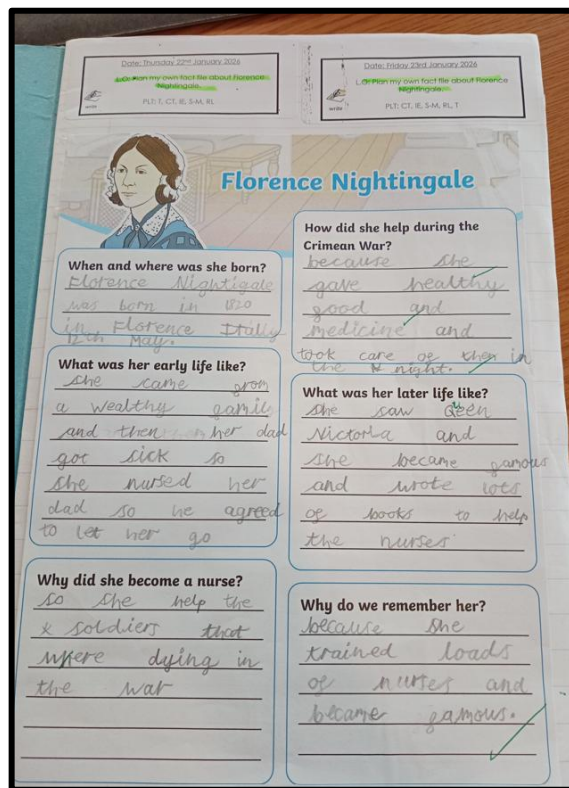 Date: Thursday 22nd January 2026
L.O: Plan my own fact file about Florence
Nightingale.
PLT: T, CT, IE, S-M, RL
write
Date: Friday 23rd January 2026
L.O: Plan my own fact file about Florence
Nightingale.
PLT: CT, IE, S-M, RL, T
write
Florence Nightingale
When and where was she born?
Florence Nightigale
was born in 1820
in Florence Itally
12th May.
What was her early life like?
she came from
a wealthy family
and then her dad
got sick so
she nursed her
dad so he agreed
to let her go
Why did she become a nurse?
so she help the
soldiers that
where dying in
the war
How did she help during the
Crimean War?
because she
gave healthy
good and
medicine and
took care of them in
the night.
What was her later life like?
She saw Queen
Victoria and
she became famous
and wrote lots
of books to help
the nurses
Why do we remember her?
because she
trained loads
of nurses and
became famous.